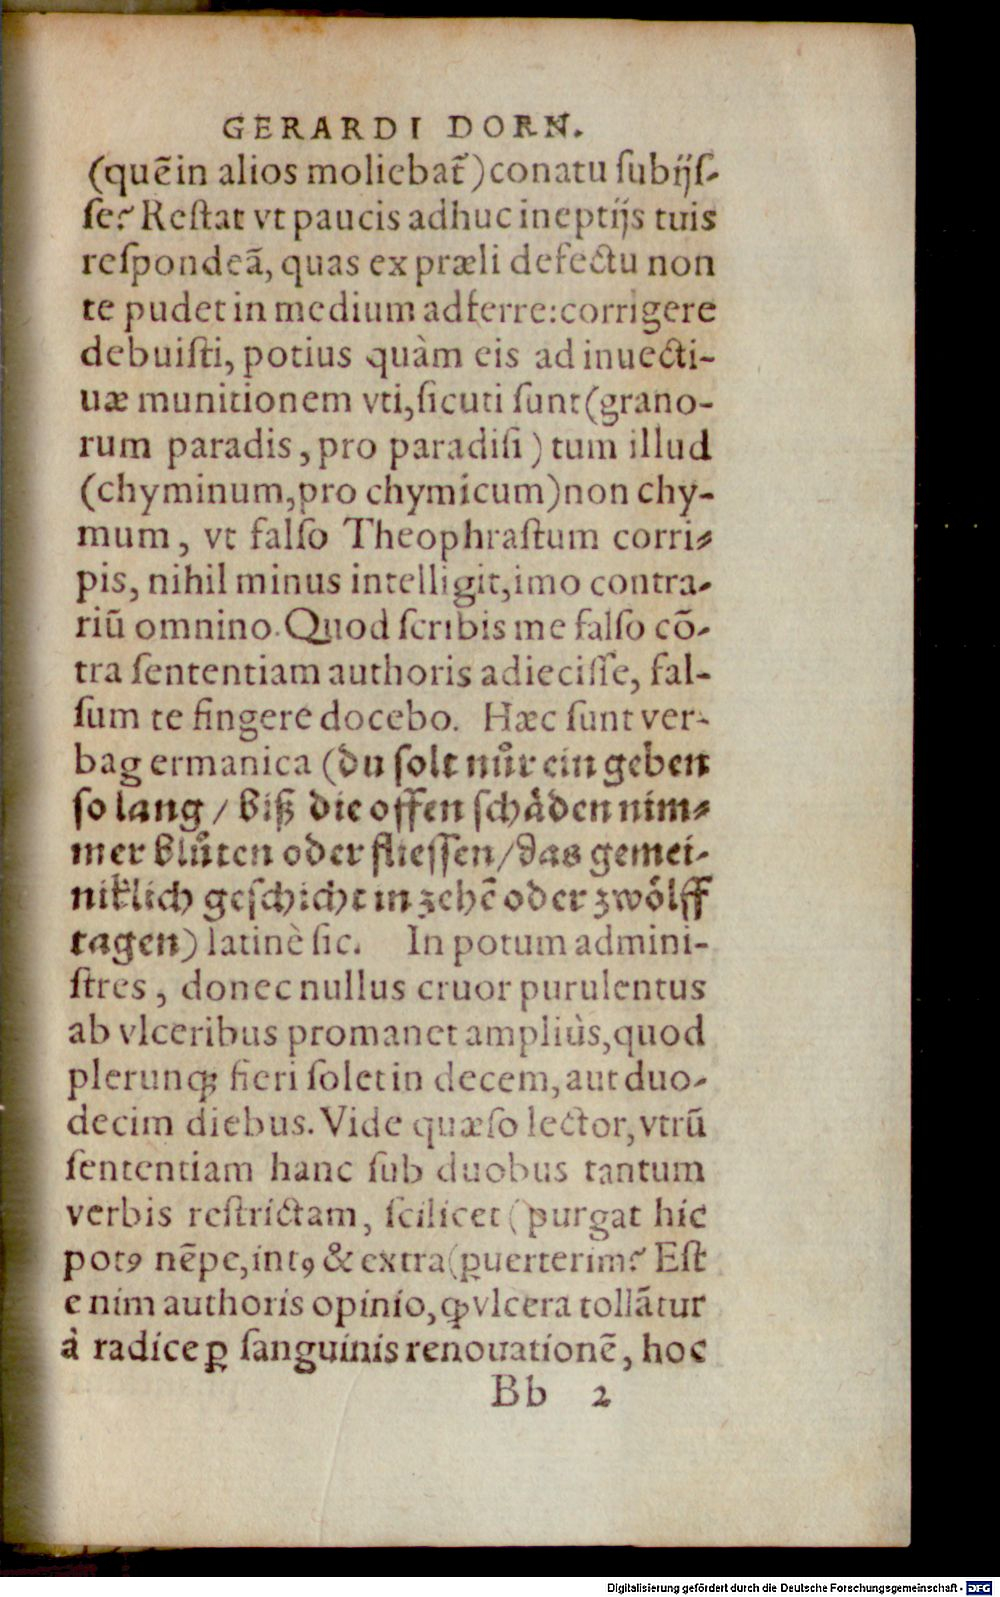 GERARDI DORN.
(quẽ in alios moliebat᷑) conatu ſubijſ-
ſe? Reſtat vt paucis adhuc ineptijs tuis
reſpondeã, quas ex præli defectu non
te pudet in medium adferre: corrigere
debuiſti, potius quàm eis ad inuecti-
uæ munitionem vti, ſicuti ſunt (grano-
rum paradis, pro paradiſi) tum illud
(chyminum, pro chymicum) non chy-
mum, vt falſo Theophraſtum corri-
pis, nihil minus intelligit, imo contra-
riũ omnino. Quod ſcribis me falſo cõ-
tra ſententiam authoris adieciſſe, fal-
ſum te fingere docebo. Hæc ſunt ver-
ba germanica (du ſolt nůr ein geben
ſo lang / biß die offen ſchåden nim-
mer blůten oder flieſſen / das gemei-
niklich geſchicht in zehẽ oder zwölff
tagen) latinè ſic. In potum admini-
ſtres, donec nullus cruor purulentus
ab vlceribus promanet ampliùs, quod
plerunq; fieri ſolet in decem, aut duo-
decim diebus. Vide quæſo lector, vtrũ
ſententiam hanc ſub duobus tantum
verbis reſtrictam, ſcilicet (purgat hic
potꝰ nẽpe, intꝰ & extra (ꝑuerterim? Eſt
enim authoris opinio, ꝙ vlcera tollãtur
à radice ꝑ ſanguinis renouationẽ, hoc
Bb 2
Digitalisierung gefördert durch die Deutsche Forschungsgemeinschaft - DFG